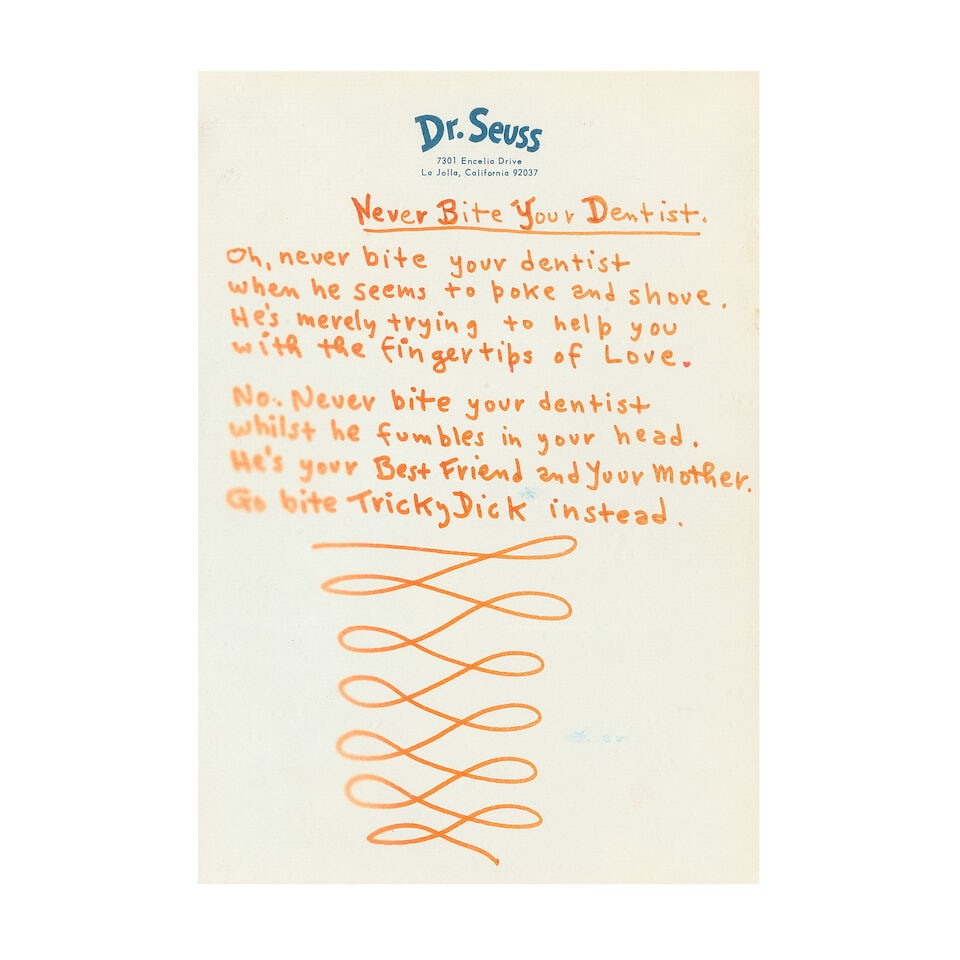 Dr. Seuss
7301 Encelia Drive
La Jolla, California 92037
Never Bite Your Dentist.
Oh, never bite your dentist
when he seems to poke and shove.
He's merely trying to help you
with the fingertips of Love.
No. Never bite your dentist
whilst he fumbles in your head.
He's your Best Friend and Your Mother.
Go bite Tricky Dick* instead.